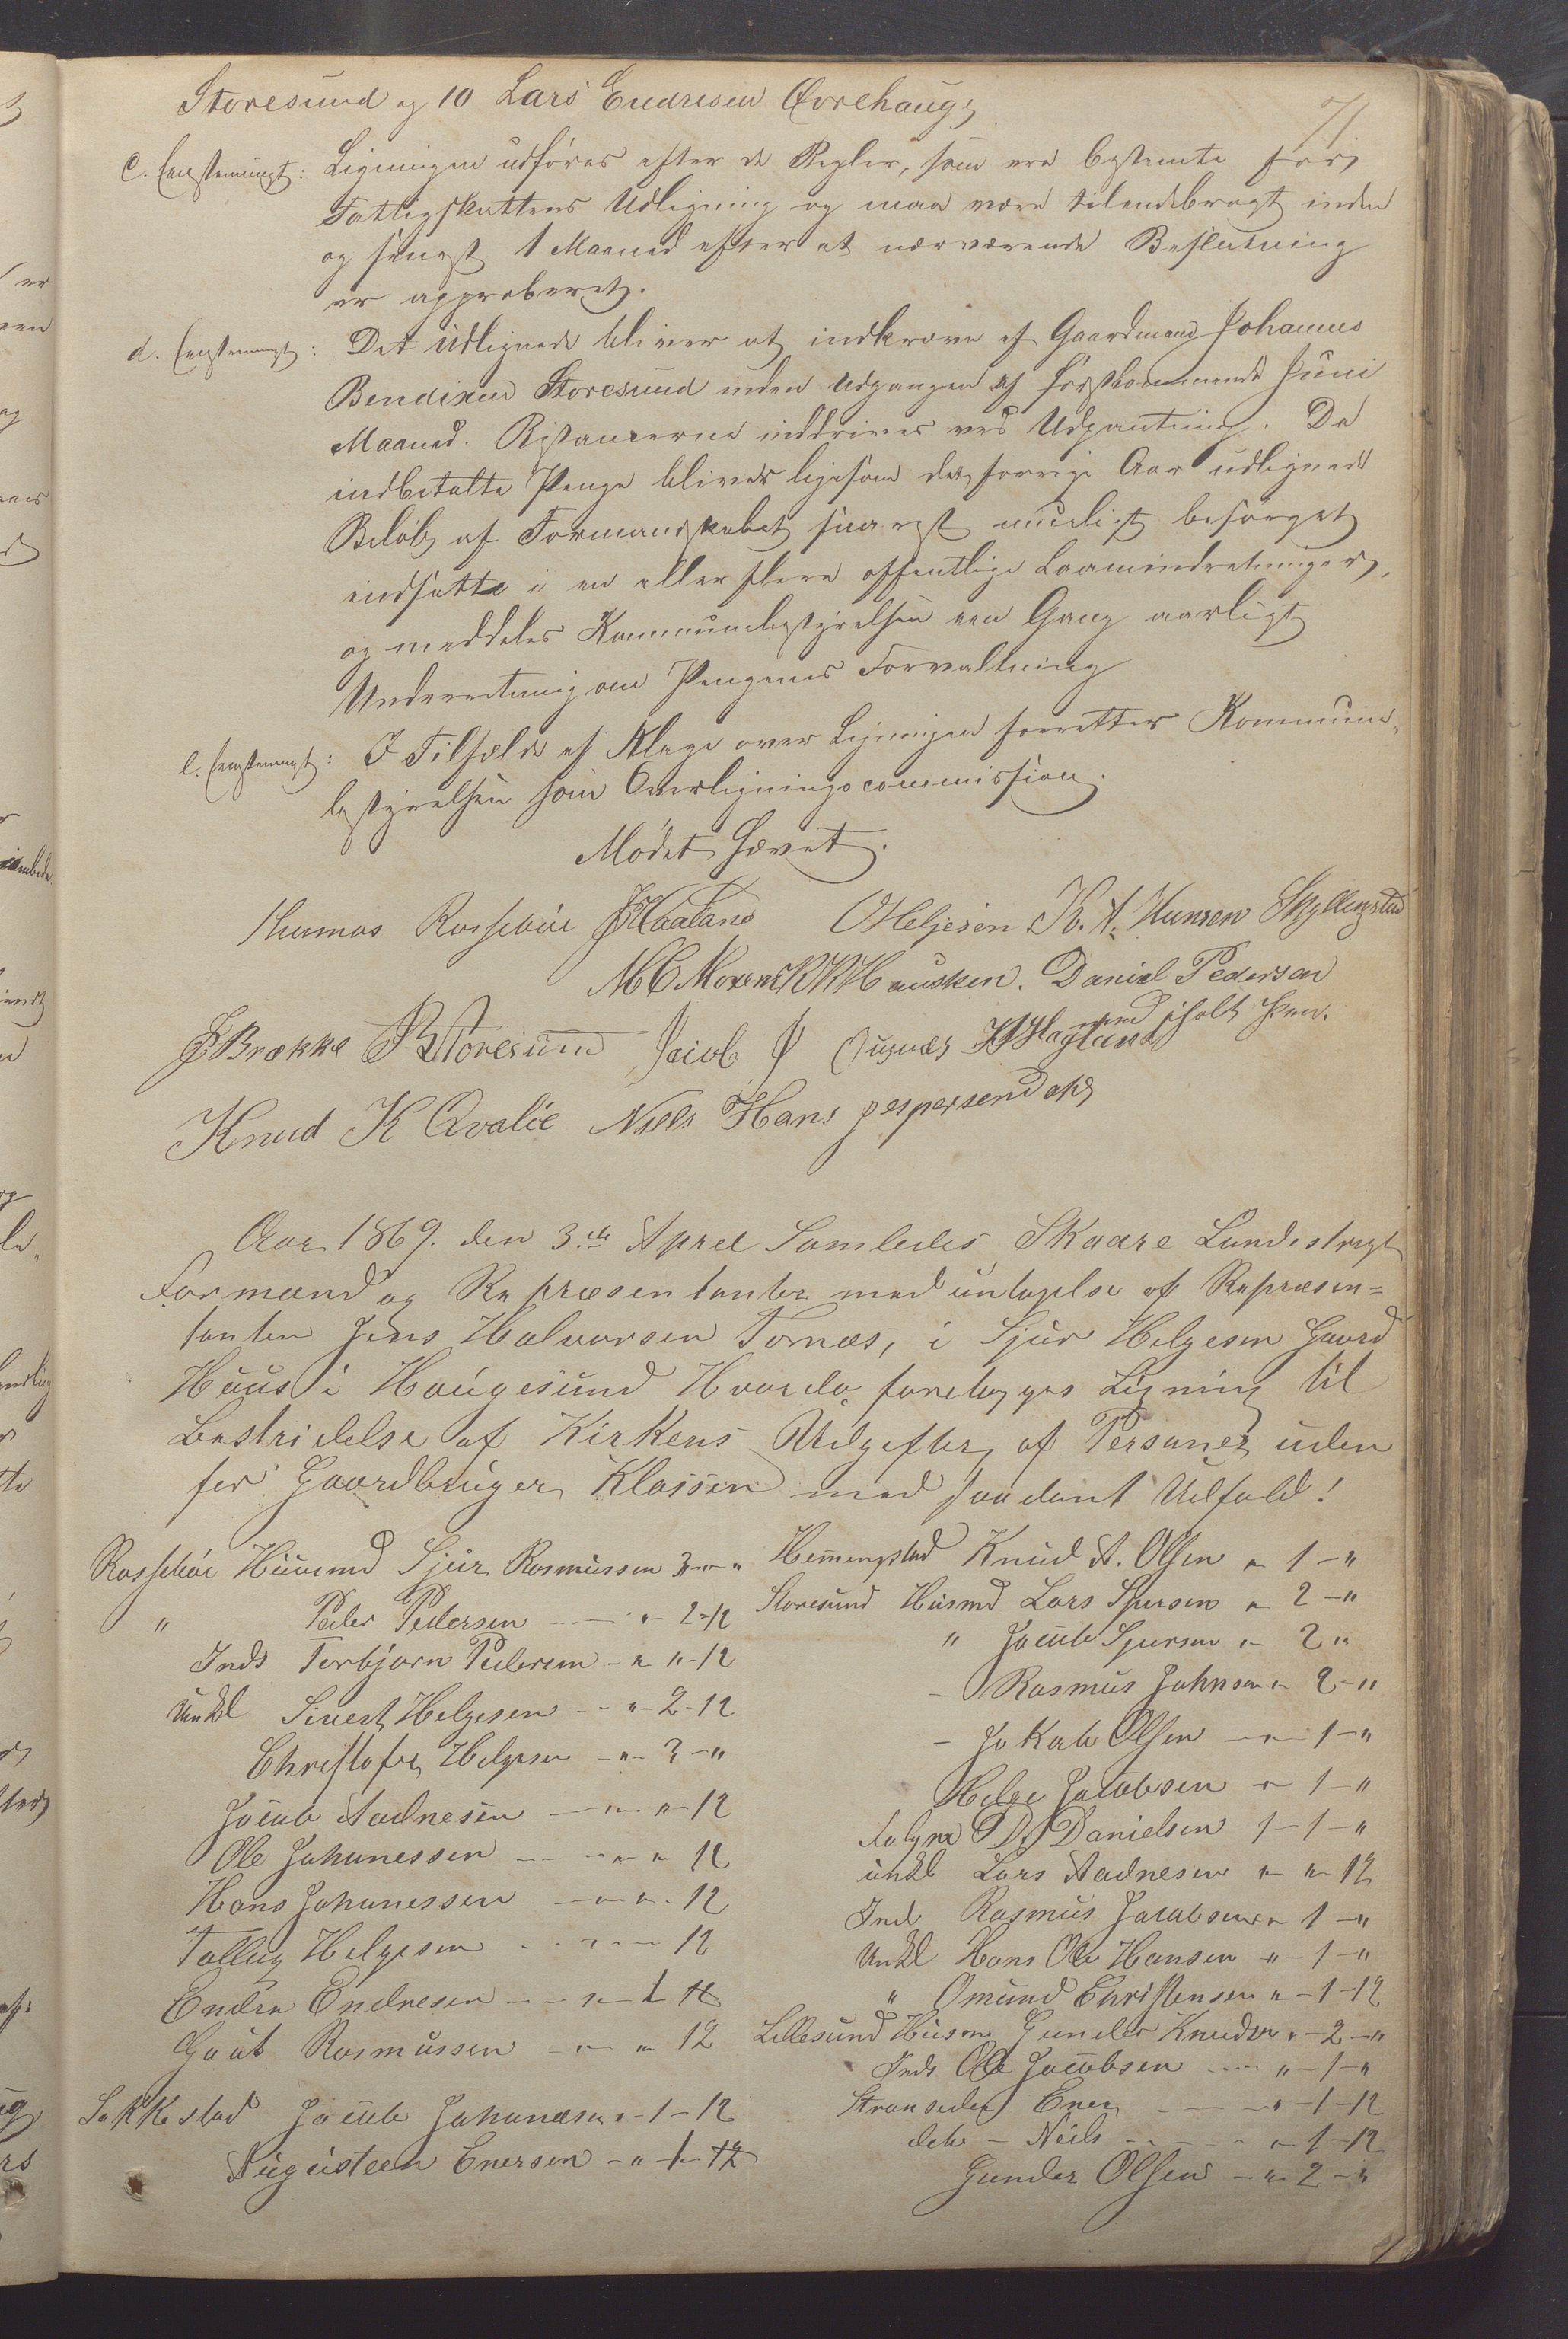 71
Storesund og 10 Lars Endresen Qvrehaug;
c. Eenstemmigt: Ligningen udføres efter de Regler, som ere bestemte for
Fattigskattens Udligning og maa være tilendebragt inden
og senest 1 Maaned efter at nærværende Beslutning
er approberet.
d. Eenstemmigt: Det udlignede bliver at indkræve af Gaardmand Johannes
Bendixen Storesund inden Udgangen af førstkommende Juni
Maaned. Restancerne inddrives ved Udpantning. De
indbetalte Penge bliver ligesom det forrige Aar udlignede
Beløb af Formandskabet snarest muligt besørget
indsatte i en eller flere offentlige Laaneindretninger,
og meddeles Kommunebestyrelsen een Gang aarligt
Underretning om Pengenes Forvaltning
e. Eenstemmigt: I Tilfælde af Klage over Ligningen forretter Kommune-
bestyrelsen som Overligningscommission.
Mødet hævet.
Thomas Rossebøe JHaaland OHelgesen K. A. Hansen Skyllengstad
M C RKHausken. Daniel Pedersen
JBrække JBStoresund Jacob J HJHagland med iholt Pen.
Knud K Qvalie Niels Hans jespersen
Aar 1869. den 3.de Aprel Samledes Skaare Landistrigt
Formænd og Repræsentanter med untagelse af Repræsen=
tanten Jens Halvorsen Tornæs, i Sjur Helgesen Gaard
Huus i Haugesund Hvorda foretoges Ligning til
Bestridelse af Kirkens Udgifter af Personer uden
for Gaardbruger Klassen med saadant Udfald!
Rossebøe Huusmd Sjur Rasmussen 3 - "
" Peder Pedersen - " - 2 - 12
Inds Torbjørn Pedersen - " " - 12
Unkl Sivert Helgesen - " - 2 - 12
Christofer Helgesen - " - 3 - "
Jacob Aadnesen - " - " - 12
Ole Johannessen - " - " 12
Hans Johannessen - " - " - 12
Tollag Helgesen - " - 12
Endre Endresen - " - 1 12
Gaut Rasmussen - " - " 12
Sakkestad Jacob Johanesen " - 1 - 12
Augusteen Enersen - " - 1 - 12
Hemmingstad Knud A. Olsen " 1 - "
Storesund Husmd Lars Sjursen " 2 - "
" Jacob Sjursen " - 2 "
- Rasmus Johnsen " - 2 - "
- Jakob Olsen - " - 1 - "
Helge Jacobsen " - 1 - "
D Danielsen 1 - 1 - "
unkl Lars Aadnesen " - " - 12
Ind Rasmus Jacobsen " 1 - "
Unkl Hans Ole Hansen " - 1 - "
" Omund Christensen " - 1 - 12
Lillesund Husm Gunder Knudsen " - 2 - "
Inds Ole Jacobsen - " - 1 - "
Stransider Ener - " - 1 - 12
dito - Neils - " - 1 - 12
Gunder Olsen - " - 2 - "